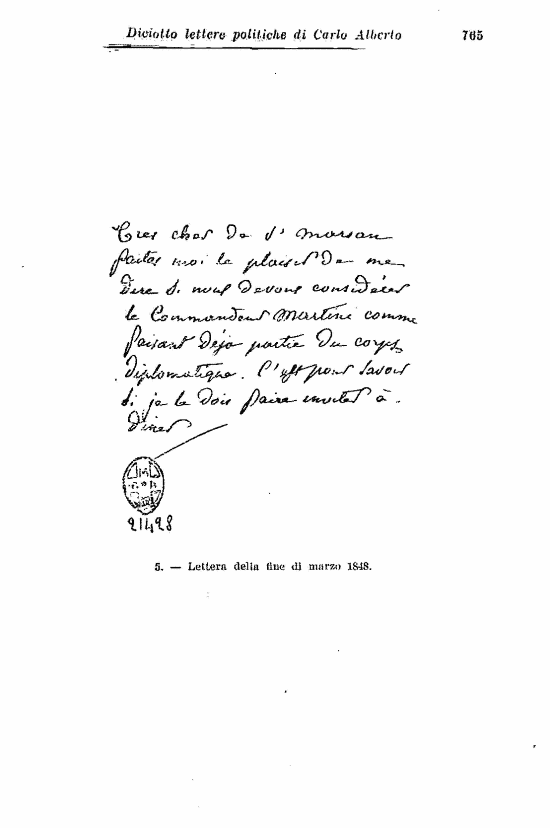 Diciotto lettere politiche di Carlo Alberto 765
Tres cher De St Marsan
faites moi le plaisir De me
Dire si nous Devons considérer
le Commandeur Martini comme
faisant Déja partie Du corps
Diplomatique. C'est pour savoir
si je le Dois faire inviter à
Diner
21428
5. — Lettera della fine di marzo 1848.